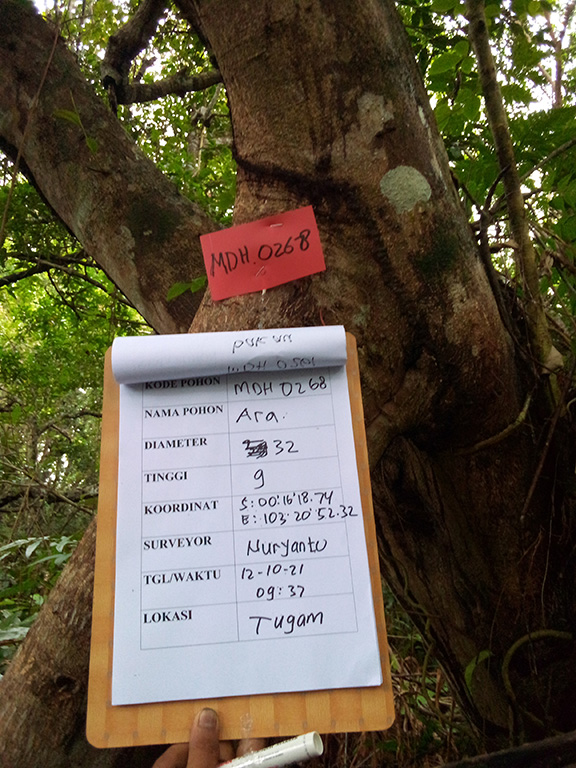 MDH.0268
KODE POHON MDH 0268
NAMA POHON Ara.
DIAMETER 32
TINGGI 9
KOORDINAT S: 00°16'18.74
E: 103°20'52.32
SURVEYOR Nuryanto
TGL/WAKTU 12-10-21
09:37
LOKASI Tugam